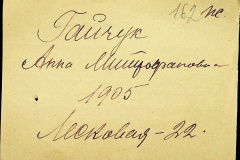 162 пс.
Гайчук
Анна Митрофановна
1905
Лесковая - 22.